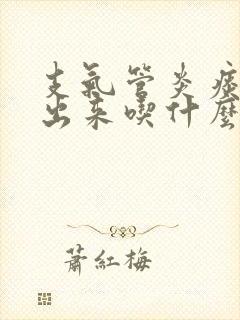 支氣管炎痰
出来喫什麼
蕭紅梅